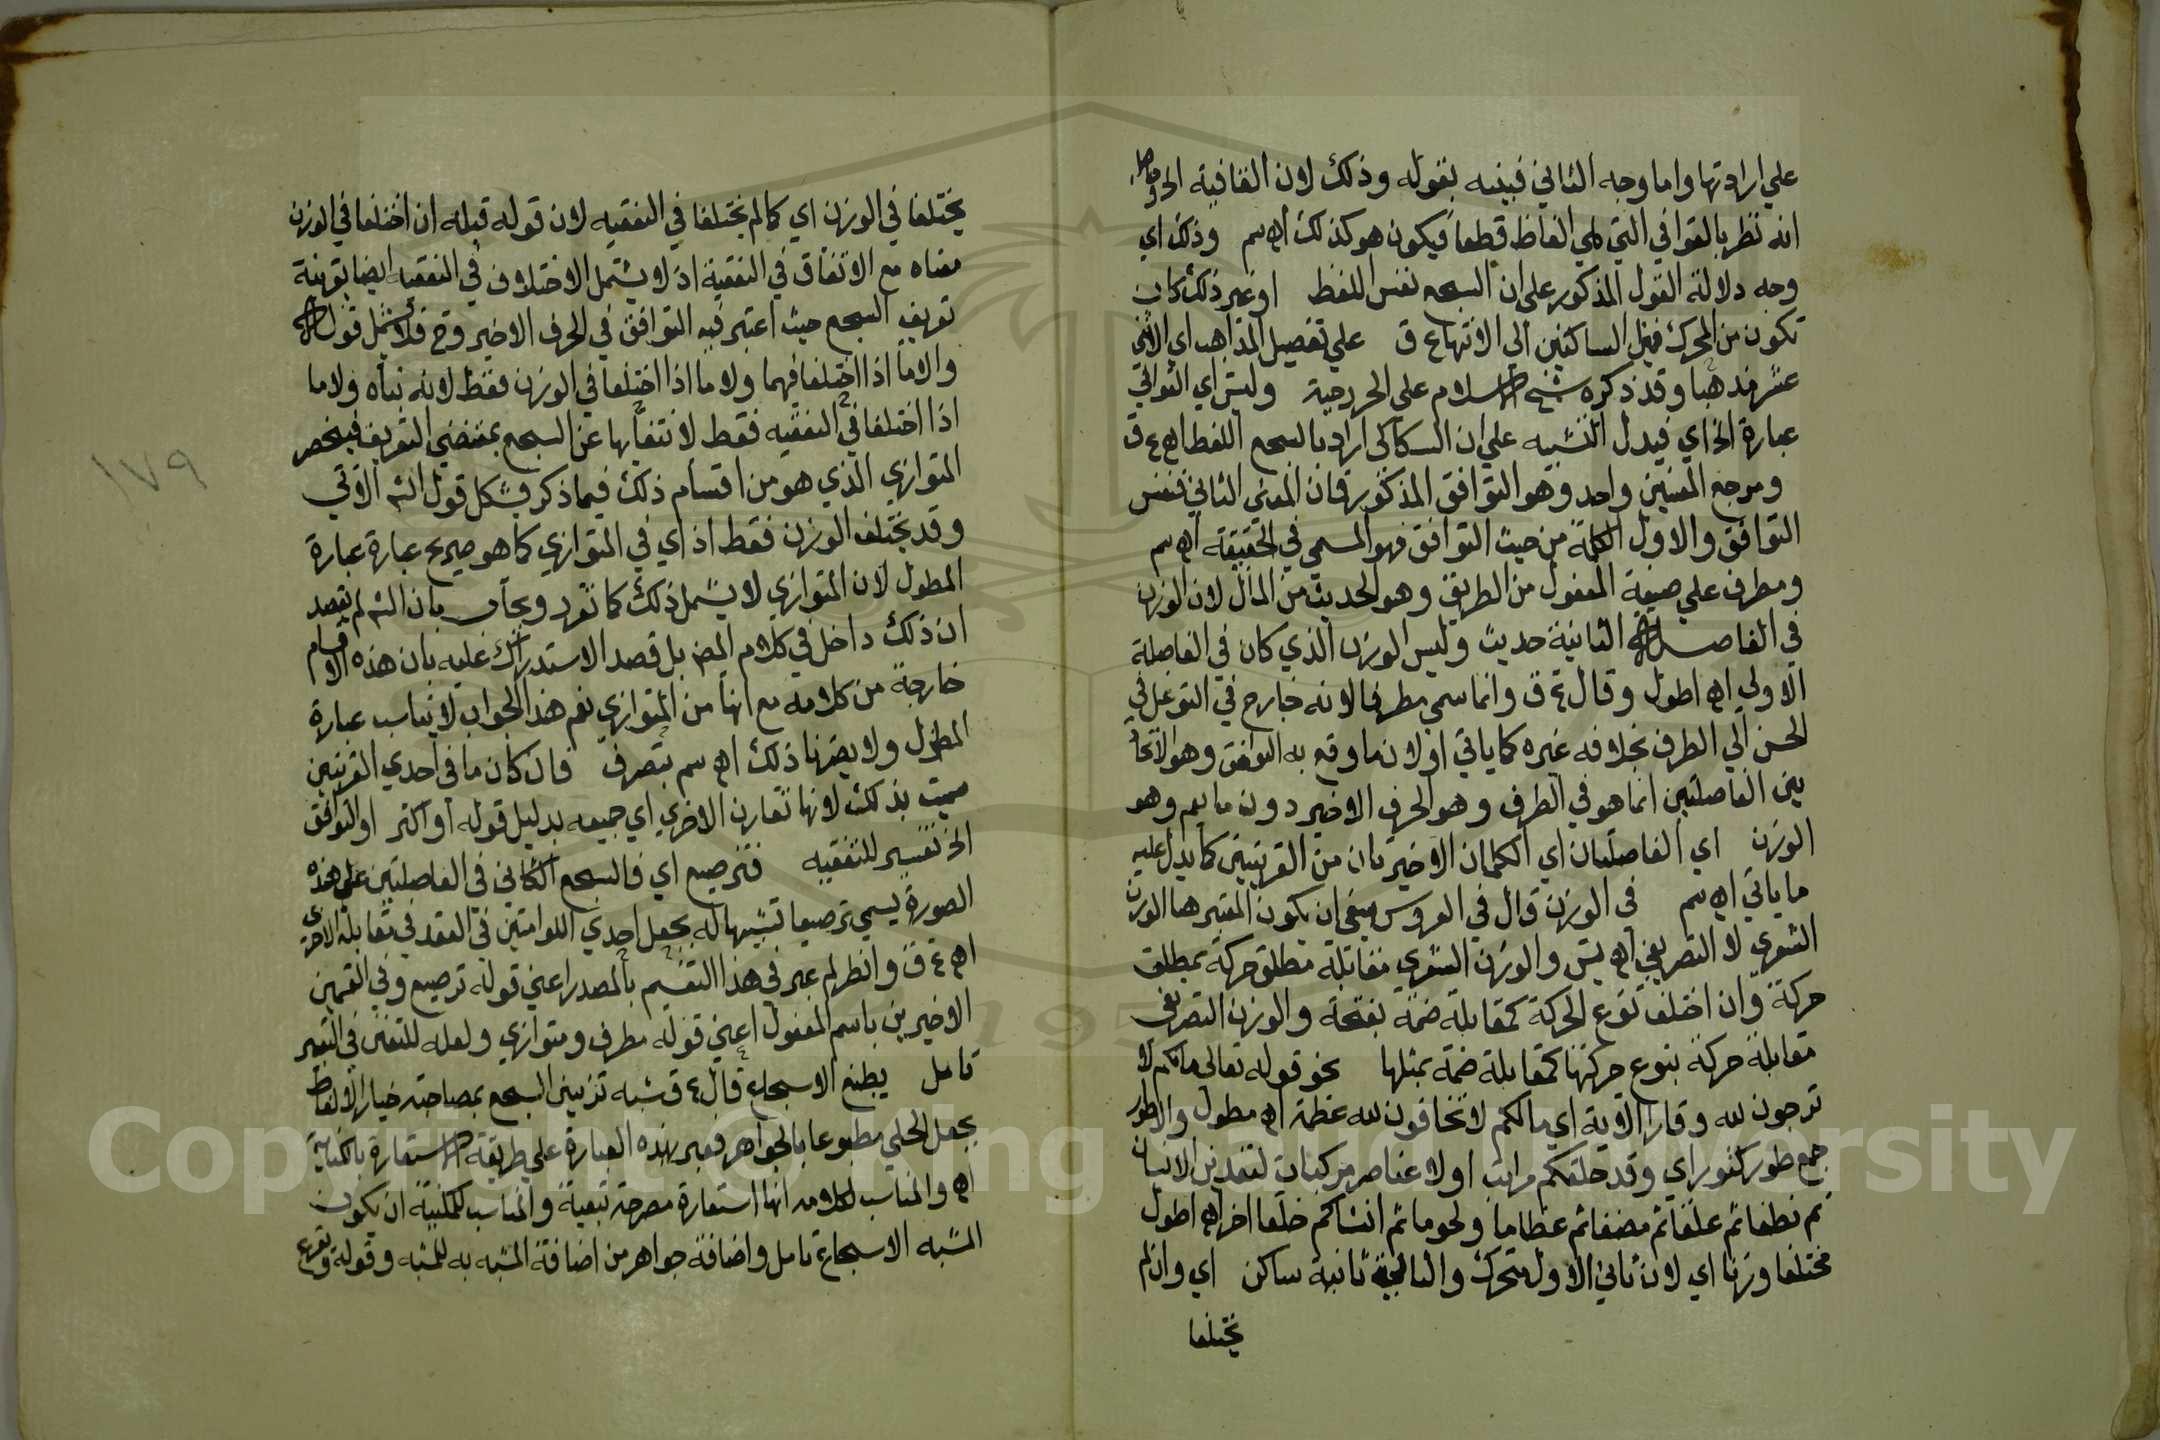 علي ارادتها واما وجه الثاني فبينه بقوله وذلك لان القافية الخ وحاصله
انه نظر بالقوافي التي هي الفاظ قطعا فيكون هو كذلك اه سم وذلك اي
وجه دلالة القول المذكور على ان السجع نفس اللفظ او غير ذلك كان
تكون من المحرك قبل الساكنين الى الانتهاء ع ق علي تفصيل المذاهب اي الاثني
عشر مذهبا وقد ذكره شيخ الاسلام علي الخزرجية وليس اي التوافق
عبارة الخ اي فيدل التشبيه علي ان السكاكي اراد بالسجع اللفظ اه ع ق
ومرجع المعنيين واحد وهو التوافق المذكور فان المعنى الثاني نفس
التوافق والاول الكلمة من حيث التوافق فهو المسمي في الحقيقة اه سم
ومطرف علي صيغة المفعول من الطريف وهو الحديث من المال لان الوزن
في الفاصلة الثانية حديث وليس الوزن الذي كان في الفاصلة
الاولي اه اطول وقال ع ق وانما سمي مطرفا لانه خارج في التوغل في
الحسن الي الطرف بخلافه غيره كما ياتي او لان ما وقع به التوافق وهو الاتحاد
بين الفاصلتين انما هو في الطرف وهو الحرف الاخير دون ما يعم وهو
الوزن اي الفاصلتان اي الكلمتان الاخيرتان من القرينتين كما يدل عليه
ما ياتي اه سم في الوزن قال في العروس ينبغي ان يكون المعتبر هنا الوزن
الشعري لا التصريفي اه يس والوزن الشعري مقابلة مطلق حركة بمطلق
حركة وان اختلف نوع الحركة كمقابلة ضمة بفتحة والوزن التصريفي
مقابلة حركة بنوع حركتها كمقابلة ضمة بمثلها نحو قوله تعالى مالكم لا
ترجون لله وقارا الاية اي مالكم لا تخافون لله عظمة اه مطول والاطوار
جمع طور كثور اي وقد خلقكم مراتب اولا عناصر مركبات لتغذي الانسان
ثم نطفا ثم علقا ثم مضغا ثم عظاما ولحوما ثم انشاكم خلقا اخر اه اطول
مختلفا وزنا اي لان ثاني الاول متحرك والثاني ثانيه ساكن اي وان لم
يختلفا
يختلفا في الوزن اي كما لم يختلفا في التقفيه لان قوله قبله ان اختلفا في الوزن
معناه مع الاتفاق في التقفية اذ لا يشتمل الاختلاف في التقفيه ايضا بقرينة
تعريف السجع حيث اعتبر فيه التوافق في الحرف الاخير وح فلا يشمل قول
والا ما اذا اختلفا فيهما ولا ما اذا اختلفا في الوزن فقط لانه نفاه ولا ما
اذا اختلفا في التقفيه فقط لانتفائها عن السجع بمقتضي التعريف فينحصر
المتوازي الذي هو من اقسام ذلك فيما ذكر فيشكل قول الشه الاتي
وقد يختلف الوزن فقط اذ اي في المتوازي كما هو صريح عبارة عبارة
المطول لان المتوازي لا يشمل ذلك كما تقرر ويجاب بان الشه لم يقصد
ان ذلك داخل في كلام المص بل قصد الاستدراك عليه بان هذه الاقسام
خارجة من كلامه مع انها من المتوازي نعم هذا الجواب لا يناسب عبارة
المطول ولا يضرنا ذلك اه سم بتصرف فان كان ما في احدي القرينتين
سميت بذلك لانها تقارن الاخري اي جميعه بدليل قوله او اكثر او التوافق
الخ تفسير للتقفيه فترصيع اي فالسجع الكائن في الفاصلتين على هذه
الصورة يسمي ترصيعا تشبيها له بجعل احدي اللولؤتين في العقد في مقابلة الاخرى
اه ع ق وانظر لم عبر في هذا التقسيم بالمصدر اعني قوله ترصيع وفي القسمين
الاخيرين باسم المفعول اعني قوله مطرف ومتوازي ولعله للتفنن في التعبير
تامل يطبع الاسجاع قال ع ق شبه تزيين السجع بمصاحبة خيار الالفاظ
بجعل الحلي مطبوعا بالجواهر فعبر بهذه العبارة علي طريقة الاستعارة بالكناية
اه والمناسب لكلامه انها استعارة مصرحة تبعية والمناسب للمكنية ان يكون
المشبه الاسجاع تامل واضافة جواهر من اضافة المشبه به للمشبه وقوله ويقرع
١٧٩
Copyright © King Saud University
195